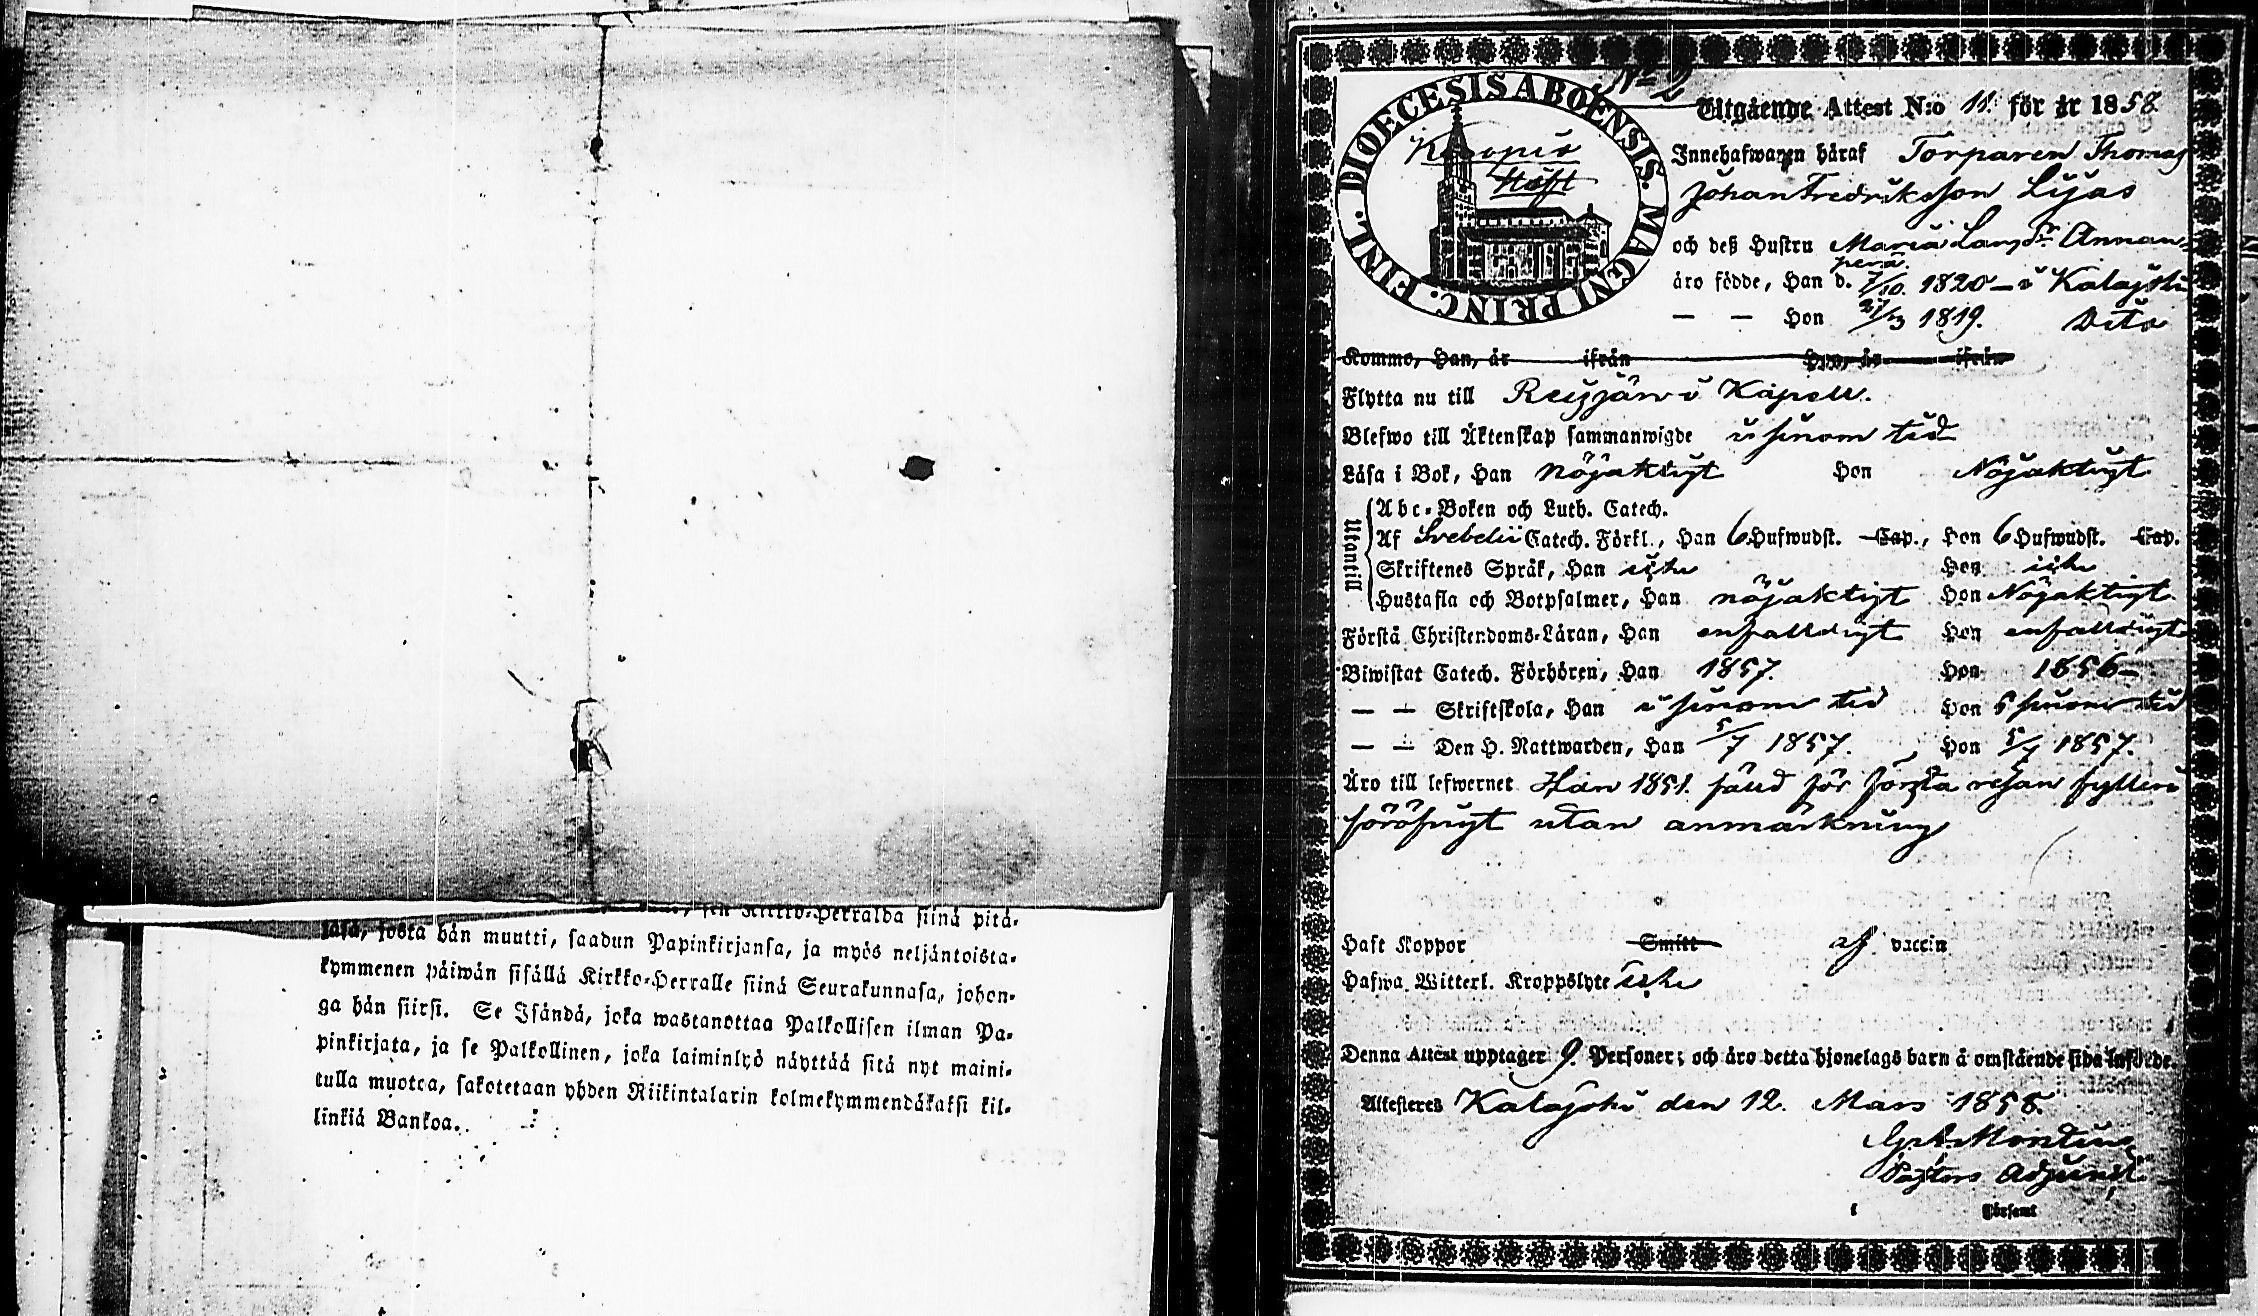 sen Kirkko-Herralda siinä pitä-
jäsä, josta hän muutti, saadun Papinkirjansa, ja myös neljäntoista-
kymmenen päiwän sisällä Kirkko-Herralle siinä Seurakunnasa, johon-
ga hän siirsi. Se Isändä, joka wastanottaa Palkollisen ilman Pa-
pinkirjata, ja se Palkollinen, joka laiminlyö näyttää sitä nyt maini-
tulla muotoa, sakotetaan yhden Riikintalarin kolmekymmendäkaksi kil-
linkiä Bankoa.
N:o 2
DIOECESIS ABOENSIS. MAGNI PRINC. FINL.
Kuopio
Stift
Utgående Attest N:o 11. för år 1858
Innehafwaren häraf Torparen Thomas
Johan Fredriksson Lijas
och deß Hustru Maria Larsdr Annan-
perä
äro födde, Han d. 7/10. 1820 – i Kalajoki
— — Hon 27/3 1819. Dito
Kommo, Han, år ifrån Hon, år ifrån
Flytta nu till Reisjärwi Kapell.
Blefwo till Äktenskap sammanwigde i sinom tid
Läsa i Bok, Han nöjaktigt Hon Nöjaktigt
Utantill
Abc-Boken och Luth. Catech.
Af Svebelii Catech. Förkl., Han 6 Hufwudst. Cap., Hon 6 Hufwudst. Cap.
Skriftenes Språk, Han icke Hon icke
Hustafla och Botpsalmer, Han nöjaktigt Hon Nöjaktigt
Förstå Christendoms-Läran, Han enfalldigt Hon enfalldigt
Biwistat Catech. Förhören, Han 1857. Hon 1856–
— — Skriftskola, Han i sinom tid Hon i sinom tid
— — Den H. Nattwarden, Han 5/7 1857. Hon 5/7 1857.
Äro till lefwernet Han 1851. fälld för första resan fylleri
föröfrigt utan anmärkning
Haft Koppor Smitt af vaccin
Hafwa Witterl. Kroppslyte icke
Denna Attest upptager 9. Personer; och äro detta hjonelags barn å omstående sida införde.
Attesteres Kalajoki den 12. Mars 1858.
Montin
Pastors Adjunct
i Församl